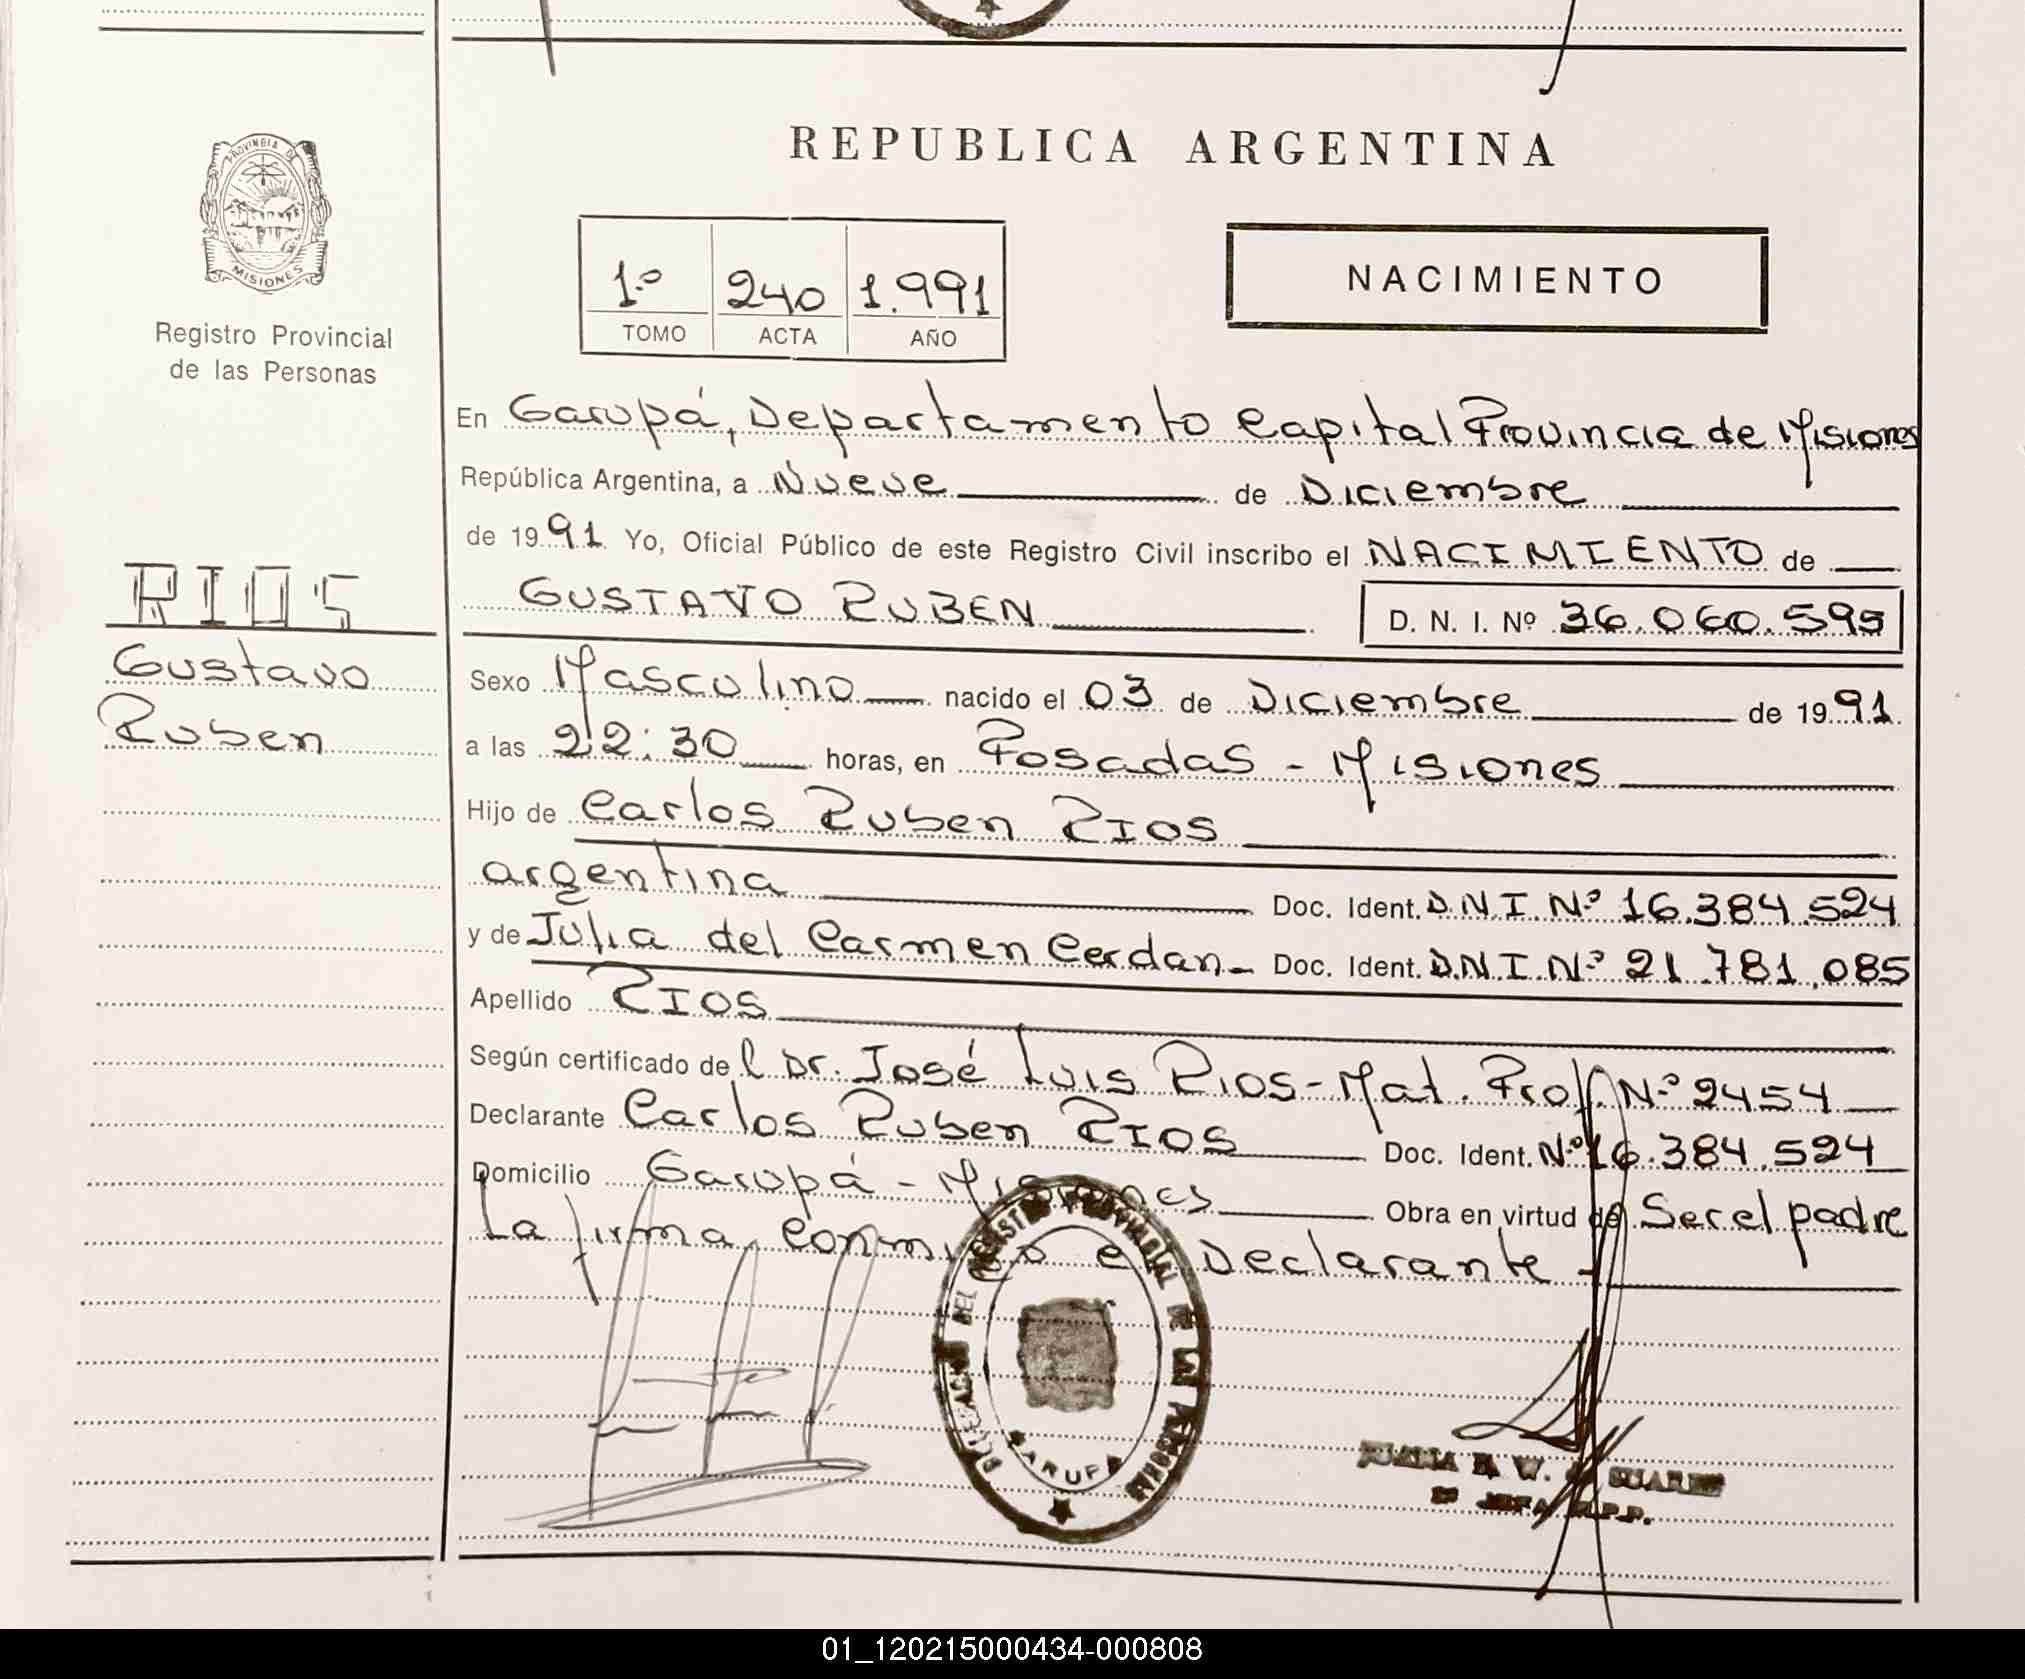 PROVINCIA DE
MISIONES
Registro Provincial
de las Personas
REPUBLICA ARGENTINA
1.º 240 1.991
TOMO ACTA AÑO
NACIMIENTO
En Garupá, Departamento Capital Provincia de Misiones
República Argentina, a Nueve de Diciembre
de 1991 Yo, Oficial Público de este Registro Civil inscribo el NACIMIENTO de
GUSTAVO RUBEN D. N. I. Nº 36.060.595
RIOS
Gustavo
Ruben
Sexo Masculino nacido el 03 de Diciembre de 1991
a las 22:30 horas, en Posadas - Misiones
Hijo de Carlos Ruben RIOS
argentina Doc. Ident. D.N.I.Nº 16.384.524
y de Julia del Carmen Cerdan- Doc. Ident. D.N.I.Nº 21.781.085
Apellido RIOS
Según certificado del Dr. José Luis Rios-Mat. Prof. Nº 2454
Declarante Carlos Ruben RIOS Doc. Ident. Nº 16.384.524
Domicilio Garupá - Misiones Obra en virtud de Ser el padre
La firma, conmigo el Declarante -
DELEGACION DEL REGISTRO PROVINCIAL DE LAS PERSONAS
GARUPA
W. SUAREZ
JEFA R.P.P.
01_120215000434-000808